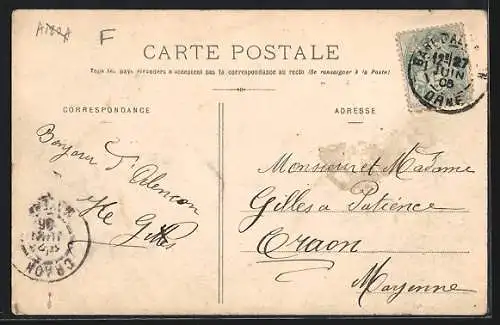 F
CARTE POSTALE
Tous les pays étrangers n'acceptent pas la correspondance au recto (Se renseigner à la Poste)
CORRESPONDANCE
ADRESSE
Bonjour d'Alencon
Gilles
Monsieur et Madame
Gilles a Patience
Craon
Mayenne
27
JUIN
ORNE
CRAON